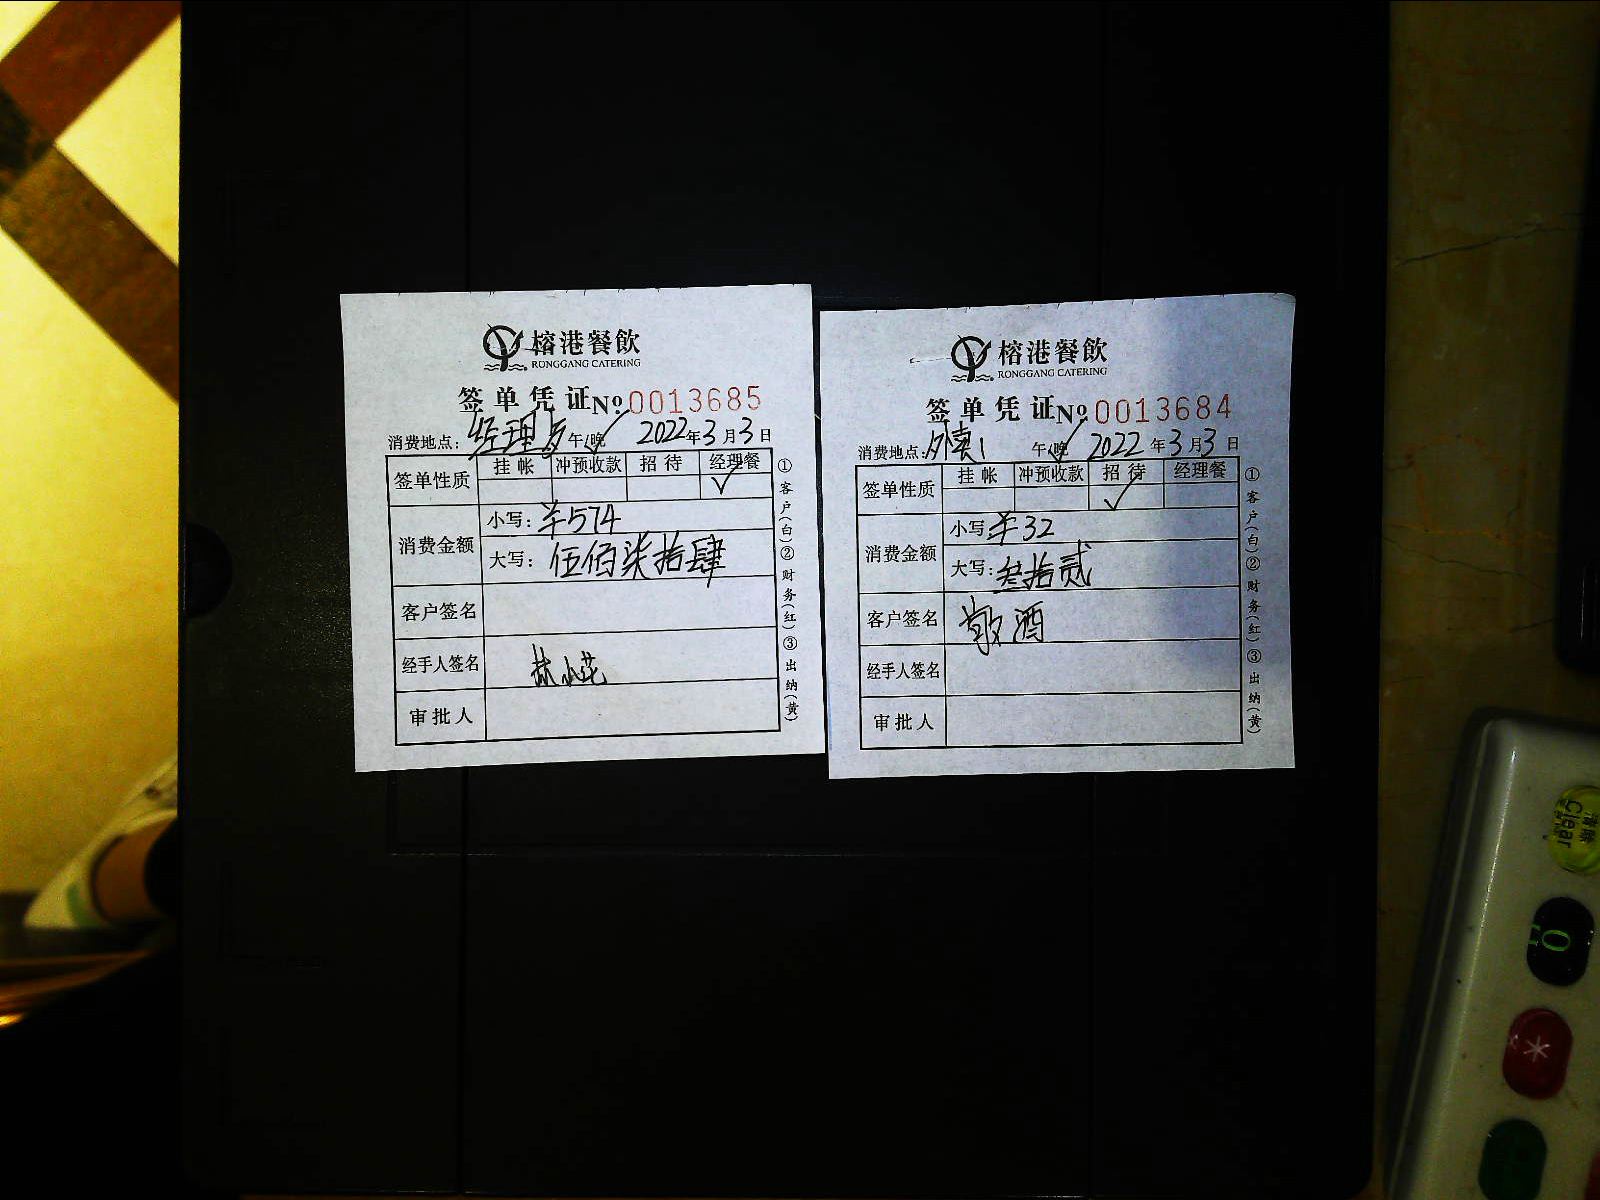 榕港餐飲
RONGGANG CATERING
签单凭证 No 0013685
消费地点: 经理 午/晚 2022年3月3日
签单性质 挂帐 冲预收款 招待 经理餐
✓
消费金额 小写: ¥574
大写: 伍佰柒拾肆
客户签名
经手人签名 林小花
审批人
①客户(白)②财务(红)③出纳(黄)
榕港餐飲
RONGGANG CATERING
签单凭证 No 0013684
消费地点: 午/晚 2022年3月3日
签单性质 挂帐 冲预收款 招待 经理餐
✓
消费金额 小写: ¥32
大写: 叁拾贰
客户签名 敬酒
经手人签名
审批人
①客户(白)②财务(红)③出纳(黄)
清除
Clear
0
*